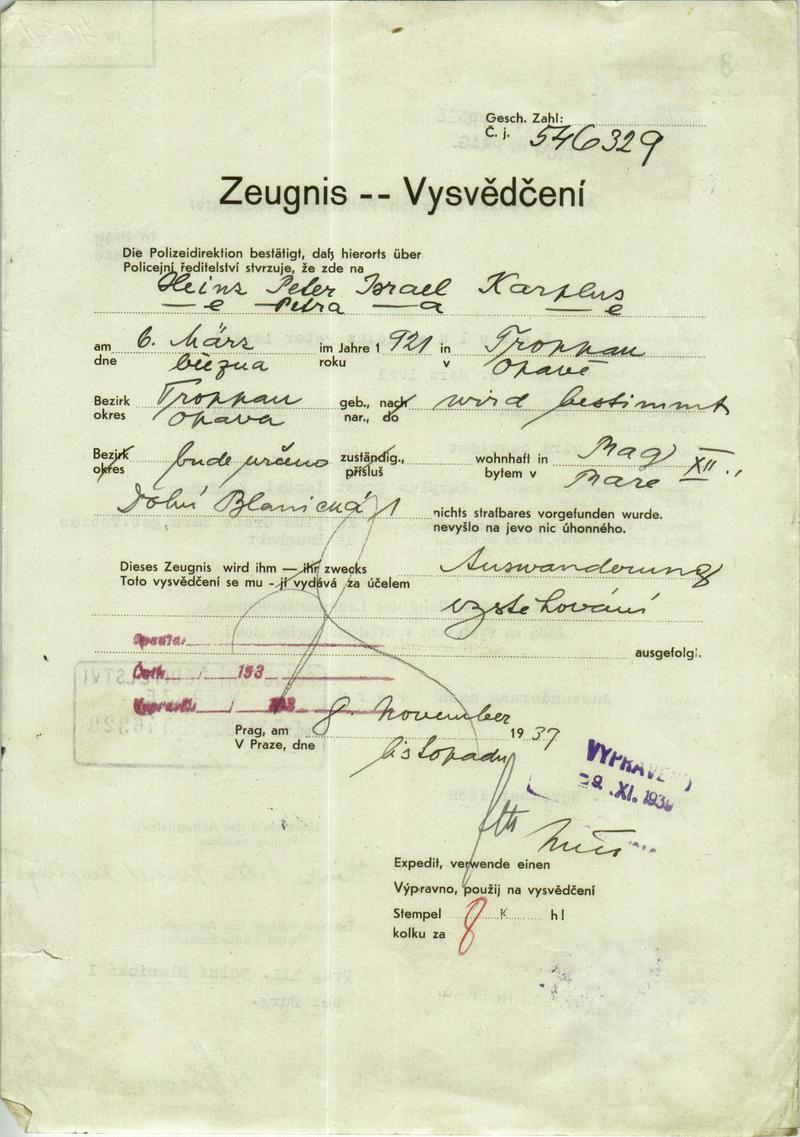 Gesch. Zahl:
Č. j. 546329
Zeugnis -- Vysvědčení
Die Polizeidirektion bestätigt, daß hierorts über
Policejní ředitelství stvrzuje, že zde na
Heinz Peter Israel Karplus
— e Petra — a — e
am 6. März im Jahre 1 921 in Troppau
dne března roku v Opavě
Bezirk Troppau geb., nach wird bestimmt
okres Opava nar., do
Bezirk bude určeno zuständig., wohnhaft in Prag XII.,
okres přísluš bytem v Praze
Dolní Blanická 1 nichts strafbares vorgefunden wurde.
nevyšlo na jevo nic úhonného.
Dieses Zeugnis wird ihm — ihr zwecks Auswanderung
Toto vysvědčení se mu - jí vydává za účelem
vystěhování
ausgefolgt.
Opsáno:
Četl: 193
Vypravil: 193
8. November
Prag, am 1939
V Praze, dne listopadu
VYPRAVENO
9. XI. 1939
Expedit, verwende einen
Výpravno, použij na vysvědčení
Stempel 8 K h!
kolku za